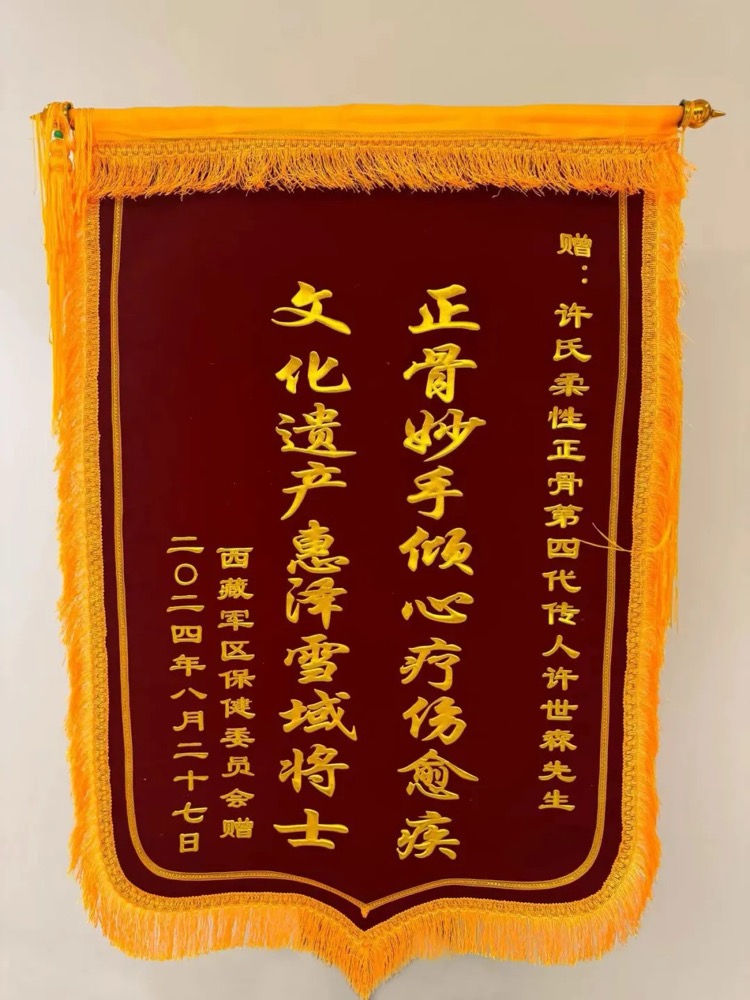 赠：许氏柔性正骨第四代传人许世森先生
正骨妙手倾心疗伤愈疾
文化遗产惠泽雪域将士
西藏军区保健委员会赠
二〇二四年八月二十七日